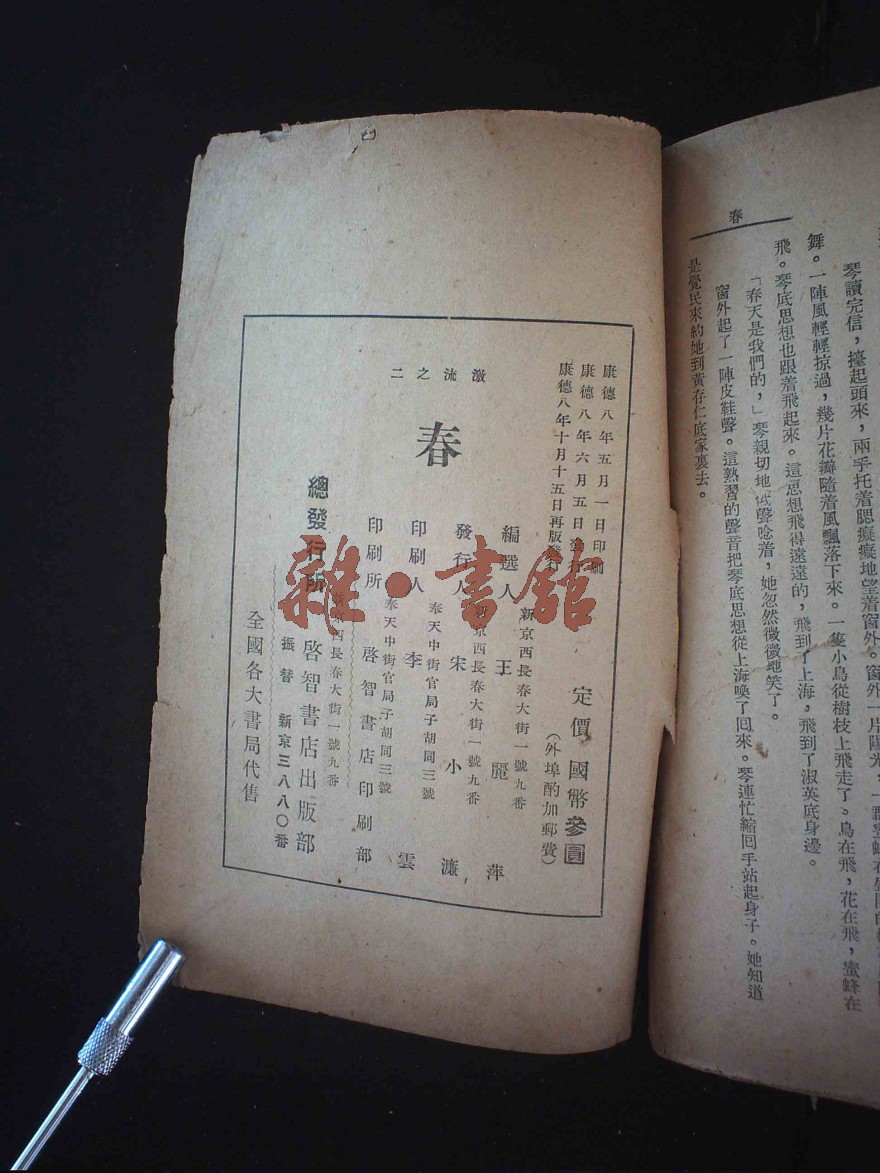 春
琴讀完信，擡起頭來，兩手托着腮癡癡地望着窗外。窗外一片陽光，一群蜜蜂在
舞。一陣風輕輕掠過，幾片花瓣隨着風飄落下來。一隻小鳥從樹枝上飛走了。鳥在飛，花在飛，蜜蜂在
飛。琴底思想也跟着飛起來。這思想飛得遠遠的，飛到了上海，飛到了淑英底身邊。
「春天是我們的，」琴親切地低聲唸着，她忽然微微地笑了。
窗外起了一陣皮鞋聲。這熟習的聲音把琴底思想從上海喚了回來。琴連忙縮回手站起身子。她知道
是覺民來約她到黃存仁底家裏去。
康德八年五月一日印刷
康德八年六月五日發行
康德八年十月十五日再版發行
定價國幣參圓
（外埠酌加郵費）
激流之二
春
編選人 王麗萍
新京西長春大街一號九番
發行人 宋小濂
新京西長春大街一號九番
印刷人 李雲
奉天中街官局子胡同三號
印刷所 啓智書店印刷部
奉天中街官局子胡同三號
總發行所 啓智書店出版部
新京西長春大街一號九番
振替 新京三八八〇番
全國各大書局代售
雜·書館